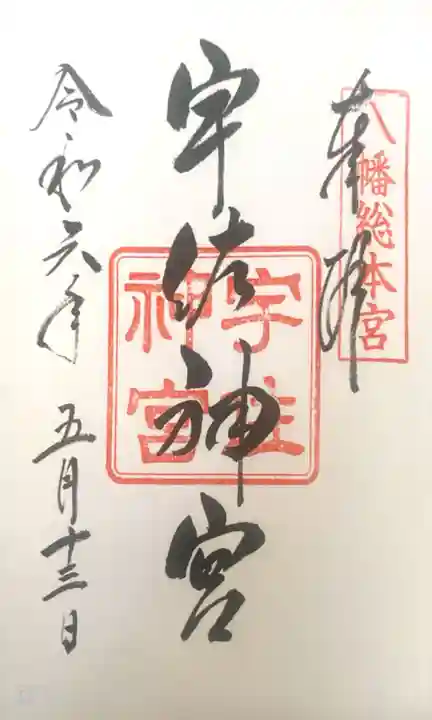 奉拝
八幡総本宮
宇佐神宮
宇佐
神宮
令和六年 五月十三日